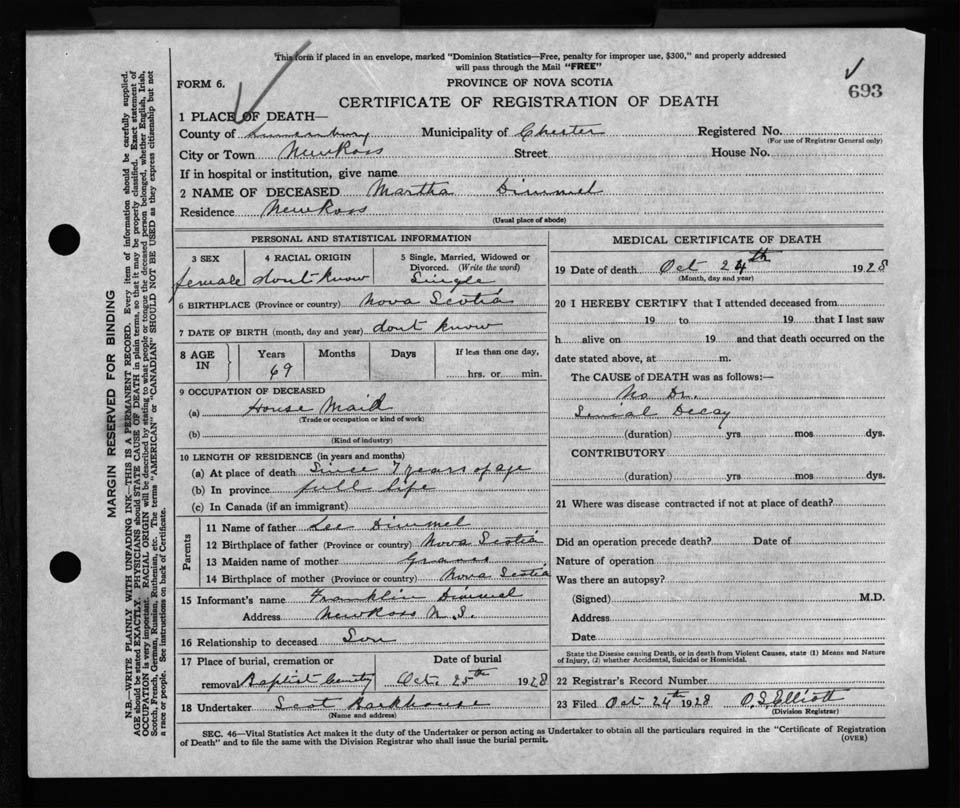 This form if placed in an envelope, marked "Dominion Statistics—Free, penalty for improper use, $300," and properly addressed
will pass through the Mail "FREE"
FORM 6.
PROVINCE OF NOVA SCOTIA
693
CERTIFICATE OF REGISTRATION OF DEATH
1 PLACE OF DEATH—
County of Lunenburg Municipality of Chester Registered No.
(For use of Registrar General only)
City or Town New Ross Street House No.
If in hospital or institution, give name
2 NAME OF DECEASED Martha Dimmel
Residence New Ross
(Usual place of abode)
MARGIN RESERVED FOR BINDING
N.B.—WRITE PLAINLY WITH UNFADING INK—THIS IS A PERMANENT RECORD. Every item of information should be carefully supplied.
AGE should be stated EXACTLY. PHYSICIANS should STATE CAUSE OF DEATH in plain terms, so that it may be properly classified. Exact statement of
OCCUPATION is very important. RACIAL ORIGIN will be described by stating to what people or tongue the deceased person belonged, whether English, Irish,
Scotch, French, German, Russian, Ruthenian, etc. The terms "AMERICAN" or "CANADIAN" SHOULD NOT BE USED as they express citizenship but not
a race or people. See instructions on back of Certificate.
PERSONAL AND STATISTICAL INFORMATION
3 SEX 4 RACIAL ORIGIN 5 Single, Married, Widowed or
Divorced. (Write the word)
female dont know Single
6 BIRTHPLACE (Province or country) Nova Scotia
7 DATE OF BIRTH (month, day and year) dont know
8 AGE IN Years Months Days If less than one day,
69 hrs. or min.
9 OCCUPATION OF DECEASED
(a) House Maid
(Trade or occupation or kind of work)
(b)
(Kind of industry)
10 LENGTH OF RESIDENCE (in years and months)
(a) At place of death Since 7 years of age
(b) In province full life
(c) In Canada (if an immigrant)
Parents
11 Name of father Lee Dimmel
12 Birthplace of father (Province or country) Nova Scotia
13 Maiden name of mother
14 Birthplace of mother (Province or country) Nova Scotia
15 Informant's name Franklin Dimmel
Address New Ross N.S.
16 Relationship to deceased Son
17 Place of burial, cremation or Date of burial
removal Baptist Oct 25th 1928
18 Undertaker Scot
(Name and address)
MEDICAL CERTIFICATE OF DEATH
19 Date of death Oct 24th 1928
(Month, day and year)
20 I HEREBY CERTIFY that I attended deceased from
19 to 19 that I last saw
h alive on 19 and that death occurred on the
date stated above, at m.
The CAUSE of DEATH was as follows:—
No Dr.
Sinial Decay
(duration) yrs mos dys.
CONTRIBUTORY
(duration) yrs mos dys.
21 Where was disease contracted if not at place of death?
Did an operation precede death? Date of
Nature of operation
Was there an autopsy?
(Signed) M.D.
Address
Date
State the Disease causing Death, or in death from Violent Causes, state (1) Means and Nature
of Injury, (2) whether Accidental, Suicidal or Homicidal.
22 Registrar's Record Number
23 Filed Oct 24th 1928 O.S. Elliott
(Division Registrar)
SEC. 46—Vital Statistics Act makes it the duty of the Undertaker or person acting as Undertaker to obtain all the particulars required in the "Certificate of Registration
of Death" and to file the same with the Division Registrar who shall issue the burial permit.
(OVER)